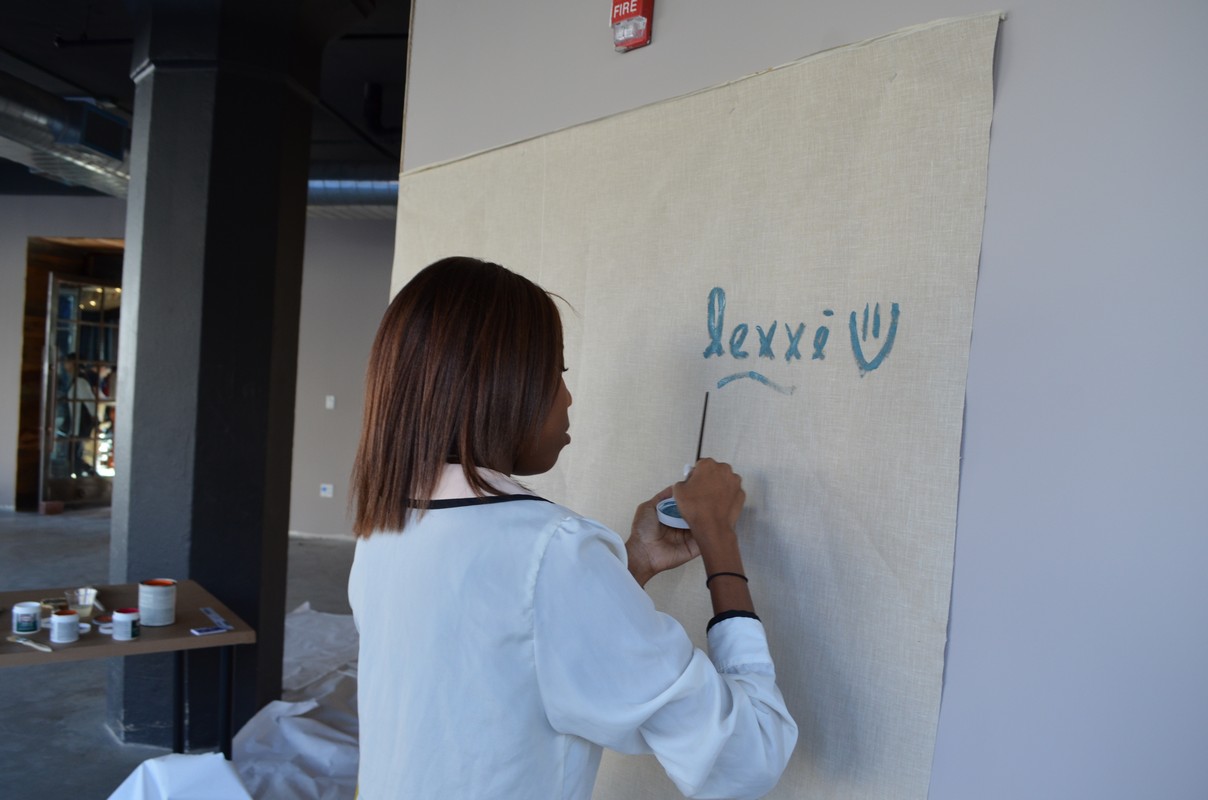 FIRE
lexxi